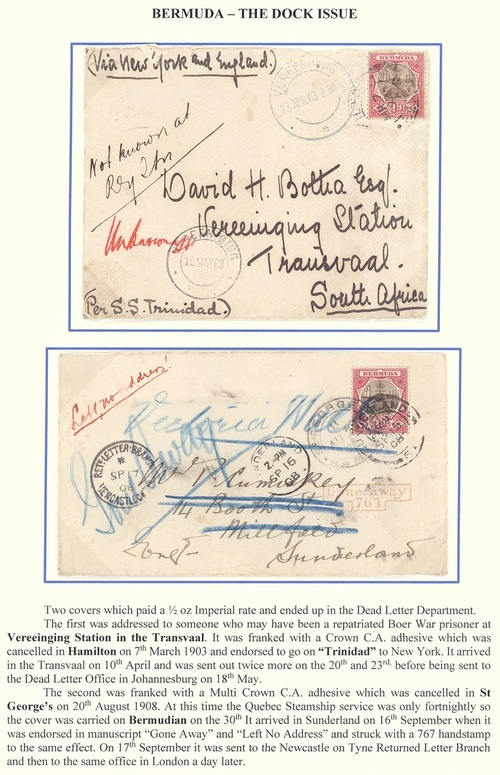 BERMUDA – THE DOCK ISSUE
(Via New York and England.)
VEREENIGING
BERMUDA
Not known at
Rly Stn
David H. Botha Esq.
Vereeinging Station
Transvaal.
South Africa
Unknown
(Per S.S. Trinidad.)
Left, no address!
BERMUDA
RETD LETTER BRANCH
SP 17
08
NEWCASTLE
SUNDERLAND
2-PM
SP 16
08
Gone Away
761
14 Booth St
Millfield
Sunderland
Two covers which paid a ½ oz Imperial rate and ended up in the Dead Letter Department.
The first was addressed to someone who may have been a repatriated Boer War prisoner at
Vereeinging Station in the Transvaal. It was franked with a Crown C.A. adhesive which was
cancelled in Hamilton on 7th March 1903 and endorsed to go on “Trinidad” to New York. It arrived
in the Transvaal on 10th April and was sent out twice more on the 20th and 23rd. before being sent to
the Dead Letter Office in Johannesburg on 18th May.
The second was franked with a Multi Crown C.A. adhesive which was cancelled in St
George’s on 20th August 1908. At this time the Quebec Steamship service was only fortnightly so
the cover was carried on Bermudian on the 30th It arrived in Sunderland on 16th September when it
was endorsed in manuscript “Gone Away” and “Left No Address” and struck with a 767 handstamp
to the same effect. On 17th September it was sent to the Newcastle on Tyne Returned Letter Branch
and then to the same office in London a day later.